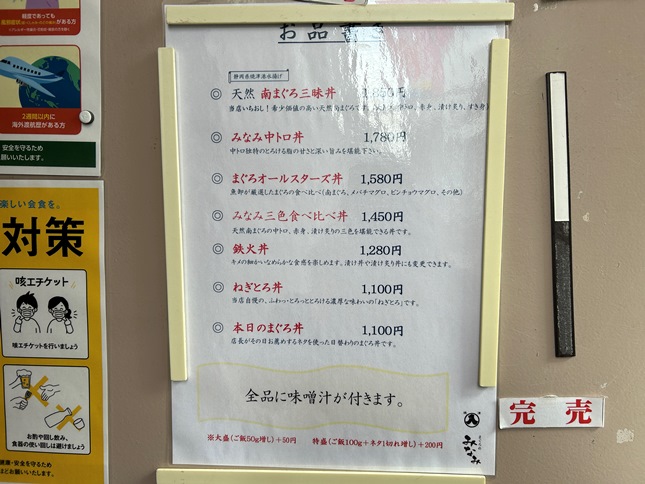 お品書き
静岡県焼津港水揚げ
◎ 天然 南まぐろ三昧丼
当店いちおし!希少価値の高い天然南まぐろです。
中トロ、赤身、漬け炙り、すき身
◎ みなみ中トロ丼 1,780円
中トロ独特のとろける脂の甘さと深い旨みを堪能下さい。
◎ まぐろオールスターズ丼 1,580円
魚卸が厳選したまぐろの食べ比べ(南まぐろ、メバチマグロ、ビンチョウマグロ、その他)
◎ みなみ三色食べ比べ丼 1,450円
天然南まぐろの中トロ、赤身、漬け炙りの三色を堪能できる丼です。
◎ 鉄火丼 1,280円
キメの細かいなめらかな食感を楽しめます。漬け丼や漬け炙り丼にも変更できます。
◎ ねぎとろ丼 1,100円
当店自慢の、ふわっ・とろっととろける濃厚な味わいの「ねぎとろ」です。
◎ 本日のまぐろ丼 1,100円
店長がその日お薦めするネタを使った日替わりのまぐろ丼です。
全品に味噌汁が付きます。
※大盛(ご飯50g増し)+50円 特盛(ご飯100g+ネタ1切れ増し)+200円
みなみ
完売
軽度であっても
がある方
2週間以内に
海外渡航歴がある方
安全を守るため
願いいたします。
楽しい会食を。
対策
咳エチケット
咳エチケットを行いましょう
お酌や回し飲み、
食器の使い回しは避けましょう
健康・安全を守るため
お願いいたします。